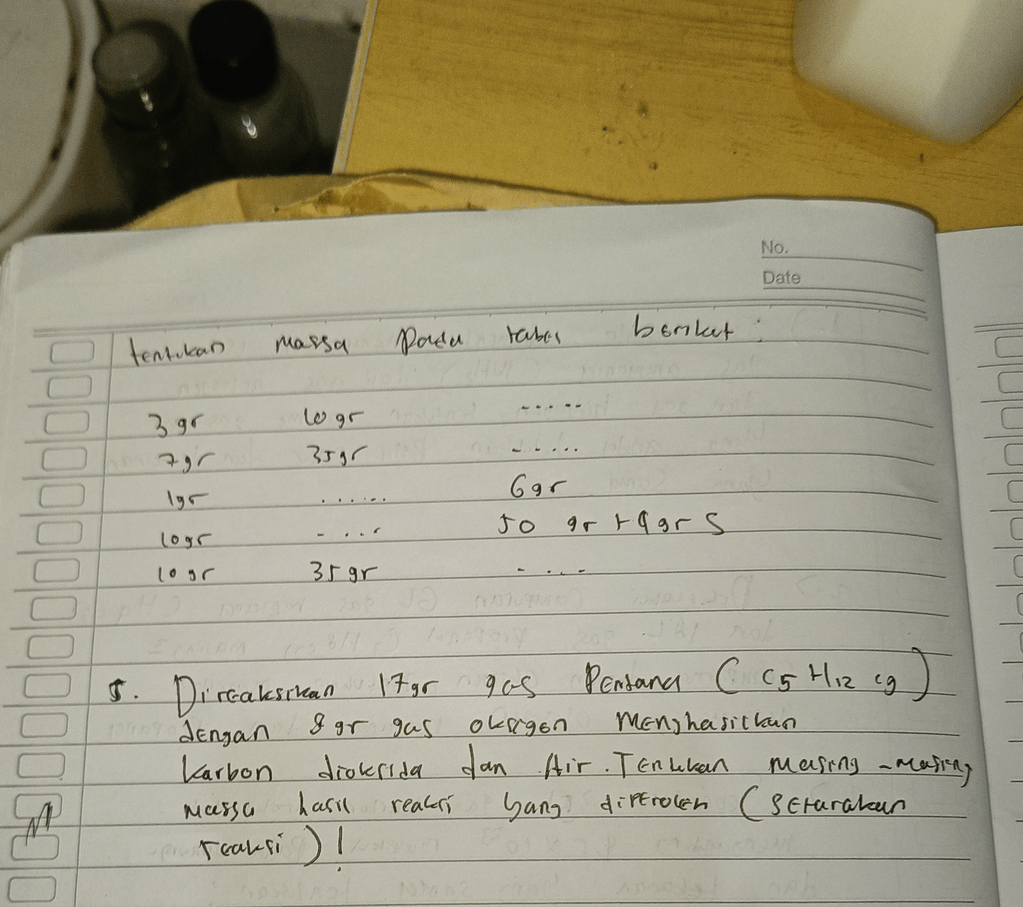 No.
Date
tentukan massa pada tabel berikut :
3 gr 10 gr .....
7 gr 35 gr .....
1 gr ...... 6 gr
10 gr .... 50 gr + 9 gr S
10 gr 35 gr ....
5. Direaksikan 17 gr gas Pentana ( C5 H12 cg )
dengan 8 gr gas oksigen menghasilkan
karbon dioksida dan Air. Tentukan masing-masing
massa hasil reaksi yang diperoleh ( Setarakan
reaksi ) !